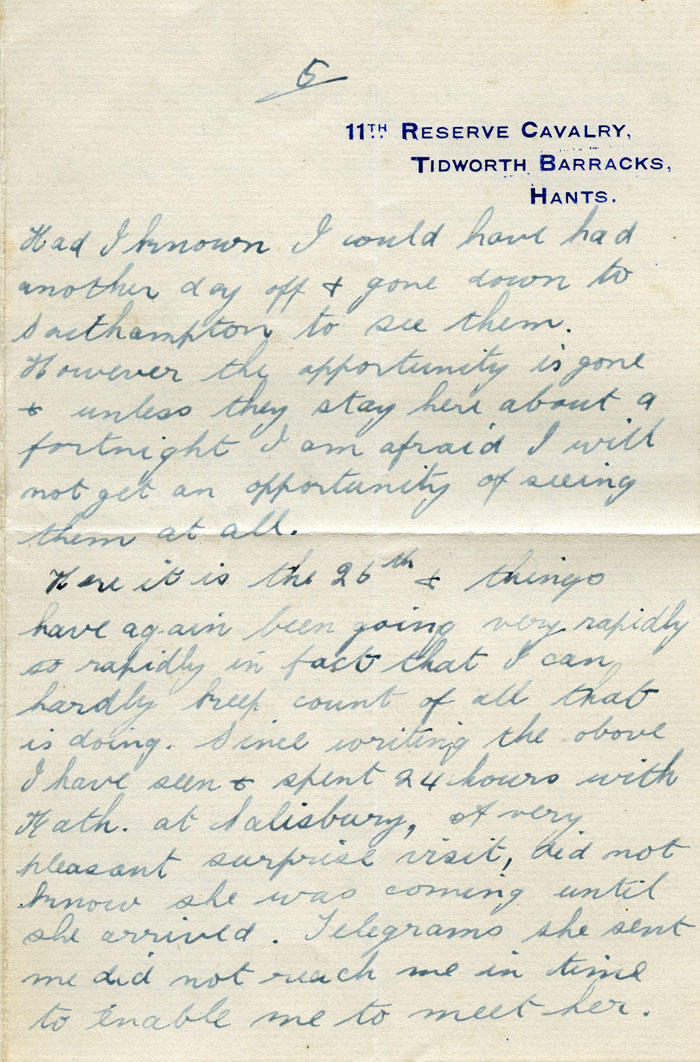 5
11TH RESERVE CAVALRY,
TIDWORTH BARRACKS,
HANTS.
Had I known I could have had
another day off & gone down to
Southampton to see them.
However the opportunity is gone
& unless they stay here about a
fortnight I am afraid I will
not get an opportunity of seeing
them at all.
Here it is the 26th & things
have again been going very rapidly
so rapidly in fact that I can
hardly keep count of all that
is doing. Since writing the above
I have seen & spent 24 hours with
Kath. at Salisbury, A very
pleasant surprise visit, did not
know she was coming until
she arrived. Telegrams she sent
me did not reach me in time
to enable me to meet her.